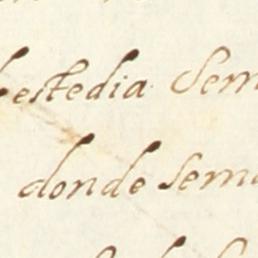 estedia Sem
donde sem